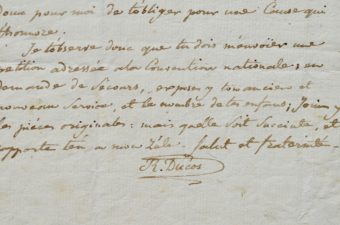 doux pour moi de t'obliger pour une Cause qui
t'honore.
Je t'observe donc que tu dois m'envoïer une
petition adressée a la Convention nationale, en
demande de Secours, exposer ton ancien et
nouveau Service, et le nombre de tes enfans; Joins y
les pieces originales: mais qu'elle soit Succinte, et
rapporte t'en a mon Zèle. Salut et fraternité.
R. Ducos